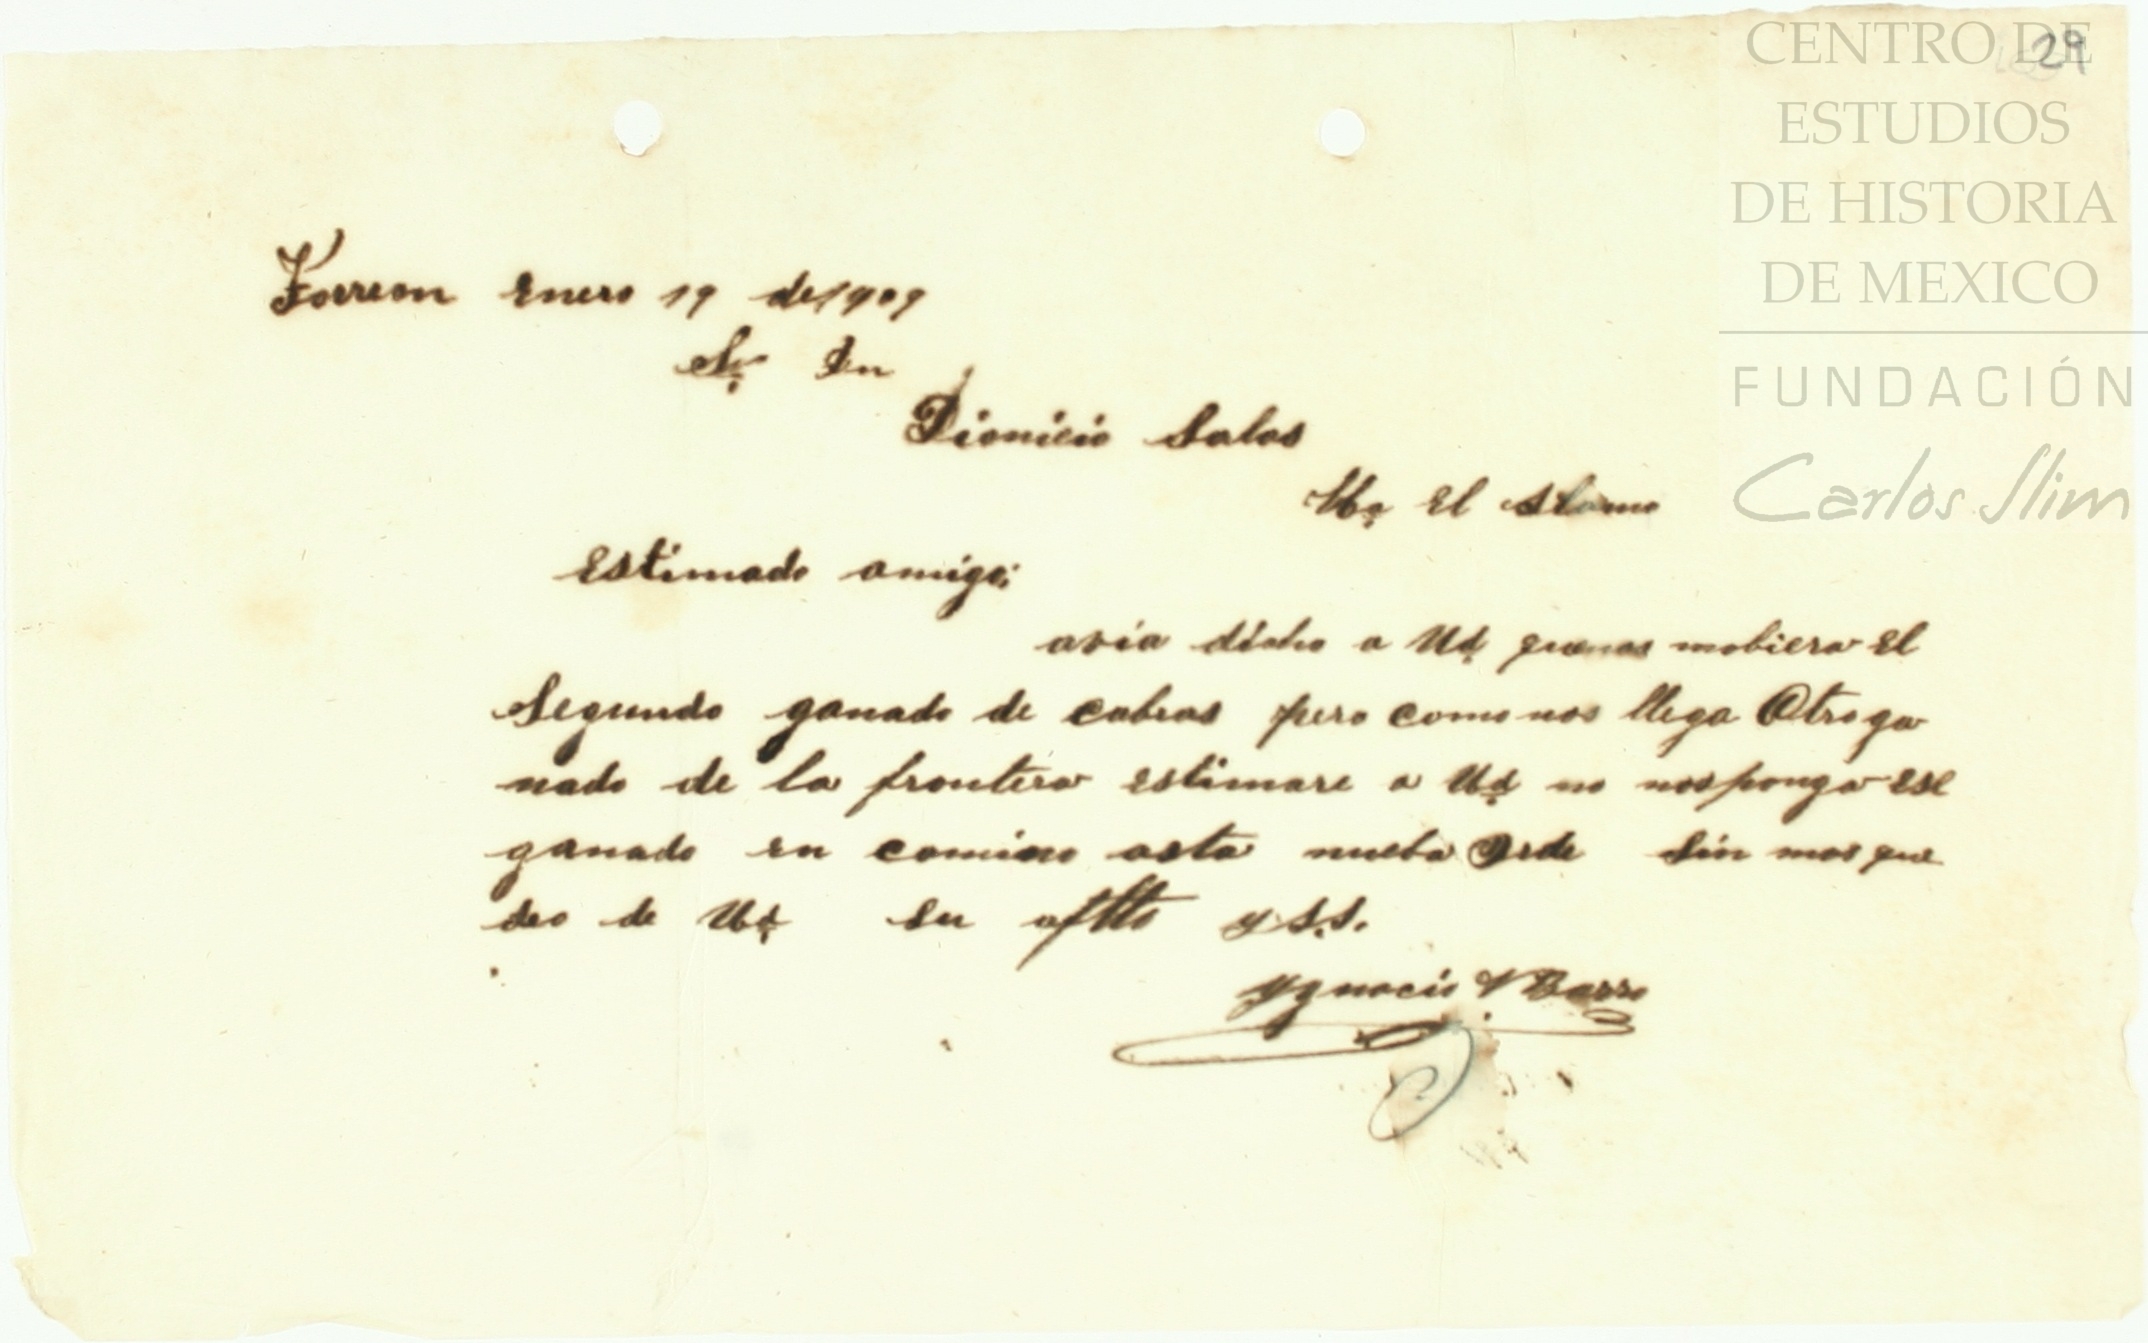 29
CENTRO DE
ESTUDIOS
DE HISTORIA
DE MEXICO
FUNDACIÓN
Carlos Slim
Torreon Enero 19 de 1909
Sr. Dn
Dionicio Salas
Ha. El Alamo
Estimado amigo:
avia dicho a Ud. que nos mobiera El
Segundo ganado de cabras pero como nos llega Otro ga
nado de la frontera estimare a Ud. no nos ponga ese
ganado en camino asta nueba Orde Sin mas que
deo de Ud. Su aftto y S.S.
Ygnacio Y Barra